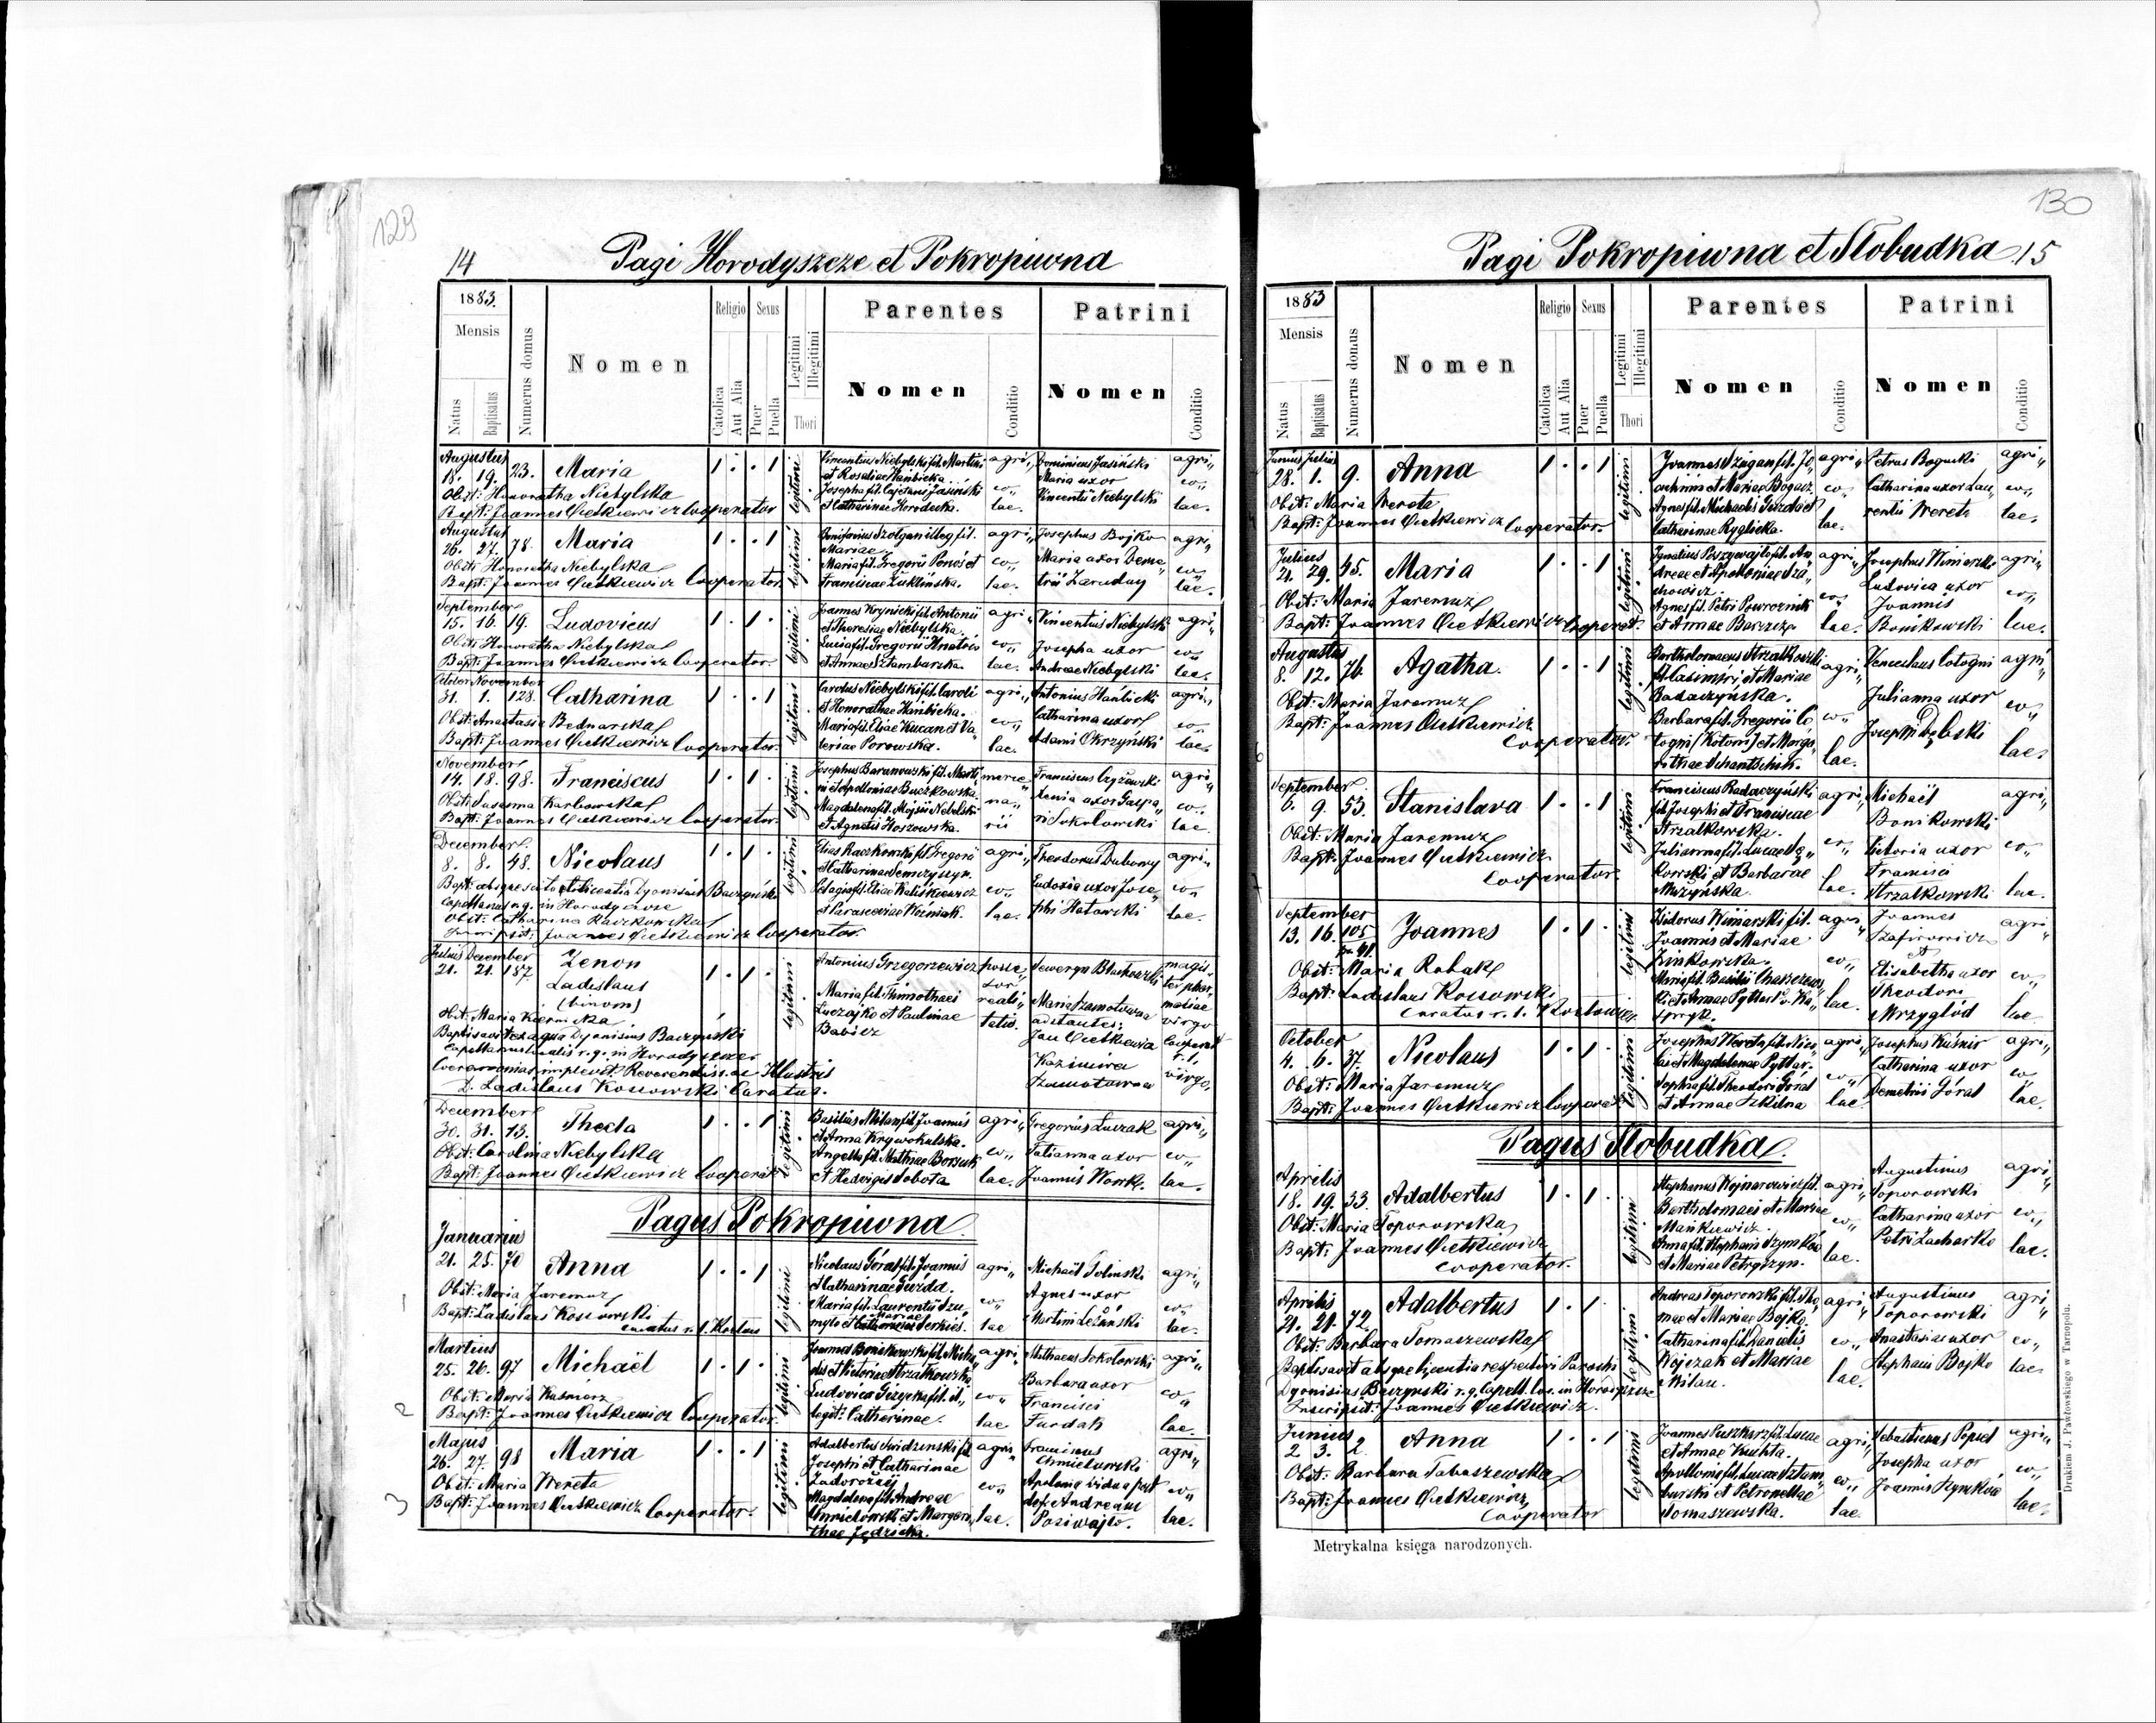 129
14
Pagi Horodyszcze et Pokropiwna
1883.
Mensis
Natus
Baptisatus
Numerus domus
Nomen
Religio
Catolica
Aut Alia
Sexus
Puer
Puella
Legitimi
Illegitimi
Thori
Parentes
Nomen
Conditio
Patrini
Nomen
Conditio
Augustus
18. 19. 23. Maria 1 . . 1 legitimi
Obst: Honoratha Niebylska
Bapt: Joannes Cietkiewicz Cooperator
Vincentius Niebylski fil. Martini
et Rosaliae Hanbicka.
Josepha fil. Cajetani Jasiński
et Catharinae Horodecka.
agri„
co„
lae.
Dominicus Jasiński
Maria uxor
Vincentii Niebylski
agri„
co„
lae.
Augustus
26. 27. 78. Maria 1 . . 1 legitimi
Obst: Honoratha Niebylska
Bapt: Joannes Cietkiewicz Cooperator.
Bonifacius Szolgan illeg fil.
Mariae
Maria fil. Gregorii Ponoś et
Franciscae Żuklińska.
agri„
co„
lae.
Josephus Bojko
Maria uxor Deme„
trii Zaruday
agri„
co„
lae.
September
15. 16. 19. Ludovicus 1 . 1 . legitimi
Obst: Honoratha Niebylska
Bapt: Joannes Cietkiewicz Cooperator.
Joannes Krynicki fil. Antonii
et Theresiae Niebylska.
Luisa fil. Gregorii Hnatów
et Annae Sztambarska.
agri„
co„
lae.
Vincentius Niebylski
Josepha uxor
Andreae Niebylski
agri„
co„
lae.
October November
31. 1. 128. Catharina 1 . . 1 legitimi
Obst: Anastasia Bednarska
Bapt: Joannes Cietkiewicz Cooperator.
Carolus Niebylski fil. Caroli
et Honorathae Hanbicka.
Maria fil. Eliae Kucan et Va„
leriae Porowska.
agri„
co„
lae.
Antonius Hanbicki
Catharina uxor
Adami Okrzyński
agri„
co„
lae.
November
14. 18. 98. Franciscus 1 . 1 . legitimi
Obst: Susanna Karbowska
Bapt: Joannes Cietkiewicz Cooperator.
Josephus Baranowski fil. Marti„
ni et Apolloniae Buczkowska.
Magdalena fil. Mojsii Nebelski
et Agnetis Hoszowska.
merce„
na„
rii
Franciscus Czyżewski
Xenia uxor Gaspa„
ri Sokolowski
agri„
co„
lae.
December
8. 8. 48. Nicolaus 1 . 1 . legitimi
Bapt: absque scitu et licentia Dyonisius Baczyński
Capellanus r. g. in Horodyszcze
Obst: Catharina Raczkowska
Inscripsit: Joannes Cietkiewicz Cooperator.
Elias Raczkowski fil. Gregorii
et Catharinae Semczyszyn.
Pelagia fil. Eliae Kaliśkiewicz
et Parasceviae Woźniak.
agri„
co„
lae.
Theodorus Dubowy
Eudoxia uxor Jose„
phi Hatowski
agri„
co„
lae.
Julius December
21. 21. 187. Zenon 1 . 1 . legitimi
Ladislaus
(binom)
Obst: Maria Kiernicka
Baptisavit ex aqua Dyonisius Baczyński
Capellanus localis r. g. in Horodyszcze
Ceremonias implevit Reverendissimus Illustris
D. Ladislaus Kossowski Curatus.
Antonius Grzegorzewicz
Maria fil. Thimothaei
Luczajko et Paulinae
Babicz
posse„
sor
reali„
tatis.
Seweryn Błachowski
Maria Szumotowna
adstantes:
Jan Cietkiewicz
Kazimira
Szumotowna
magis„
ter phar„
maciae
virgo
Cooperat
r. l.
virgo.
December
30. 31. 13. Thecla 1 . . 1 legitimi
Obst: Carolina Niebylska
Bapt: Joannes Cietkiewicz Cooperat
Basilius Milan fil. Joannis
et Anna Krywokulska.
Angella fil. Mathiae Borsuk
et Hedvigis Sobota
agri„
co„
lae.
Gregorius Luczak
Tatianna uxor
Joannis Wowk.
agri„
co„
lae.
Pagus Pokropiwna
Januarius
21. 25. 70 Anna 1 . . 1 legitimi
Obst: Maria Jaremuz
Bapt: Ladislaus Kossowski
curatus r. l. Kozlow
Nicolaus Góral fil. Joannis
et Catharinae Gwizda.
Maria fil. Laurentii Szu„
mylo et Mariae Serkies.
agri„
co„
lae
Michaël Solinski
Agnes uxor
Martini Leżański
agri„
co„
lae.
1
Martius
25. 26. 97 Michaël 1 . 1 . legitimi
Obst: Maria Kaśmierz
Bapt: Joannes Cietkiewicz Cooperator.
Joannes Bonikowski fil. Micha„
elis et Victoriae Strzałkowska
Ludovica Giżycka fil. il„
legit: Catharinae.
agri„
co„
lae
Mathaeus Sokolowski
Barbara uxor
Francisci
Furdak
agri„
co„
lae.
2
Majus
26. 27. 98 Maria 1 . . 1 legitimi
Obst: Maria Wereta
Bapt: Joannes Cietkiewicz Cooperator.
Adalbertus Swidzinski fil
Josephi et Catharinae
Zadorożnij
Magdalena fil. Andreae
Chmielowski et Marga„
thae Jędzicka.
agri„
co„
lae.
Franciscus
Chmielowski
Apolonia vidua post
def. Andream
Posiwajlo.
agri„
co„
lae.
3
130
Pagi Pokropiwna et Słobudka 15
1883
Mensis
Natus
Baptisatus
Numerus domus
Nomen
Religio
Catolica
Aut Alia
Sexus
Puer
Puella
Legitimi
Illegitimi
Thori
Parentes
Nomen
Conditio
Patrini
Nomen
Conditio
Junius Julius
28. 1. 9. Anna 1 . . 1 legitimi
Obst: Maria Wereta
Bapt: Joannes Cietkiewicz Cooperator.
Joannes Dzugan fil. Jo„
achimi et Mariae Bogacz.
Agnes fil. Michaelis Gwizda et
Catharinae Ryglicka.
agri„
co„
lae.
Petrus Bogucki
Catharina uxor Lau„
rentii Wereta
agri„
co„
lae.
Julius
21. 29. 45. Maria 1 . . 1 legitimi
Obst: Maria Jaremuz
Bapt: Joannes Cietkiewicz Cooperat.
Ignatius Poszywajlo fil. An„
dreae et Apolloniae Sza„
chowicz.
Agnes fil. Petri Powroznik
et Annae Barszcz.
agri„
co„
lae.
Josephus Winiarski
Ludovica uxor
Joannis
Bonikowski
agri„
co„
lae.
Augustus
8. 12. 76. Agatha. 1 . . 1 legitimi
Obst: Maria Jaremuz
Bapt: Joannes Cietkiewicz
Cooperator.
Bartholomaeus Strzałkowski
fil. Casimiri et Mariae
Badaczyńska.
Barbara fil. Gregorii Co„
togni (Kotoni) et Marga„
rethae Schantschick.
agri„
co„
lae.
Venceslaus Cotogni
Julianna uxor
Josephi Dębski
agri„
co„
lae.
September
6. 9. 53. Stanislava 1 . . 1 legitimi
Obst: Maria Jaremuz
Bapt: Joannes Cietkiewicz
Cooperator.
Franciscus Radaczyński
fil. Josephi et Franciscae
Strzałkowska.
Julianna fil. Lucae Sę„
kowski et Barbarae
Muzyńska.
agri„
co„
lae.
Michaël
Bonikowski
Victoria uxor
Francisci
Strzałkowski
agri„
co„
lae.
September
13. 16. 105 Joannes 1 . 1 . legitimi
Obst: Maria Rabak
Bapt: Ladislaus Kossowski
Curatus r. l. Kozlowien.
Isidorus Winiarski fil.
Joannis et Mariae
Zinkowska.
Maria fil. Basilii Chaszczew„
ski et Annae
agri„
co„
lae.
Joannes
Szafirowicz
et
Elisabetha uxor
Theodori
Skrzyglód
agri„
co„
lae
October
4. 6. 37. Nicolaus 1 . 1 . legitimi
Obst: Maria Jaremuz
Bapt: Joannes Cietkiewicz Cooperat
Josephus Wereta fil. Nico„
lai et Magdalenae Pyttar.
Sophia fil. Theodori Góral
et Annae Szkilna
agri„
co„
lae.
Josephus Kuśnir
Catharina uxor
Demetrii Góral
agri„
co
lae.
Pagus Słobudka.
Aprilis
18. 19. 33. Adalbertus 1 . 1 . legitimi
Obst: Maria Toporowska
Bapt: Joannes Cietkiewicz
Cooperator.
Stephanus Wojnarowicz fil.
Bartholomaei et Mariae
Mańkiewicz.
Anna fil. Stephani Szymków
et Mariae Petryszyn.
agri„
co„
lae.
Augustinus
Toporowski
Catharina uxor
Petri Zacharko
agri„
co„
lae.
Aprilis
21. 21. 72. Adalbertus 1 . 1 . legitimi
Obst: Barbara Tomaszewska
Baptisavit absque licentia respectivi Parochi
Dyonisius Baczynski r. g. Capell. loc. in Horodyszcze
Inscripsit: Joannes Cietkiewicz.
Andreas Toporowski fil. Tho„
mae et Mariae Bojko.
Catharina fil. Danielis
Kojczak et Mariae
Milan.
agri„
co„
lae.
Augustinus
Toporowski
Anastasia uxor
Stephani Bojko
agri„
co„
lae.
Junius
2. 3. 2. Anna 1 . . 1 legitimi
Obst: Barbara Tabaszewska
Bapt: Joannes Cietkiewicz
Cooperator
Joannes Puszkarz fil. Lucae
et Annae Kuchta.
Apollonia fil. Lucae Sztam„
burski et Petronellae
Tomaszewska.
agri„
co„
lae.
Sebastianus Popiel
Josepha uxor
Joannis Szymków
agri„
co„
lae.
Metrykalna księga narodzonych.
Drukiem J. Pawłowskiego w Tarnopolu.